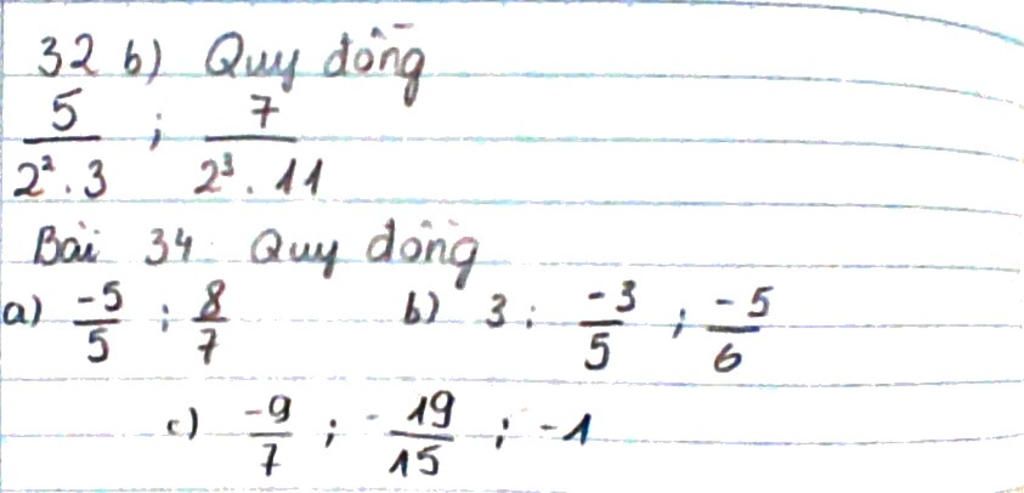 32 b) Quy đồng
5/2².3 ; 7/2³.11
Bài 34 Quy đồng
a) -5/5 ; 8/7 b) 3 ; -3/5 ; -5/6
c) -9/7 ; -19/15 ; -1